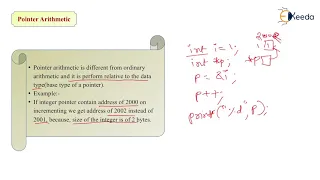 Pointer Arithmetic
Ekeeda
• Pointer arithmetic is different from ordinary
arithmetic and it is perform relative to the data
type(base type of a pointer).
• Example:-
• If integer pointer contain address of 2000 on
incrementing we get address of 2002 instead of
2001, because, size of the integer is of 2 bytes.
int i=1;
int *p;
p = &i;
p++;
printf("%d",p);
i
1
*p